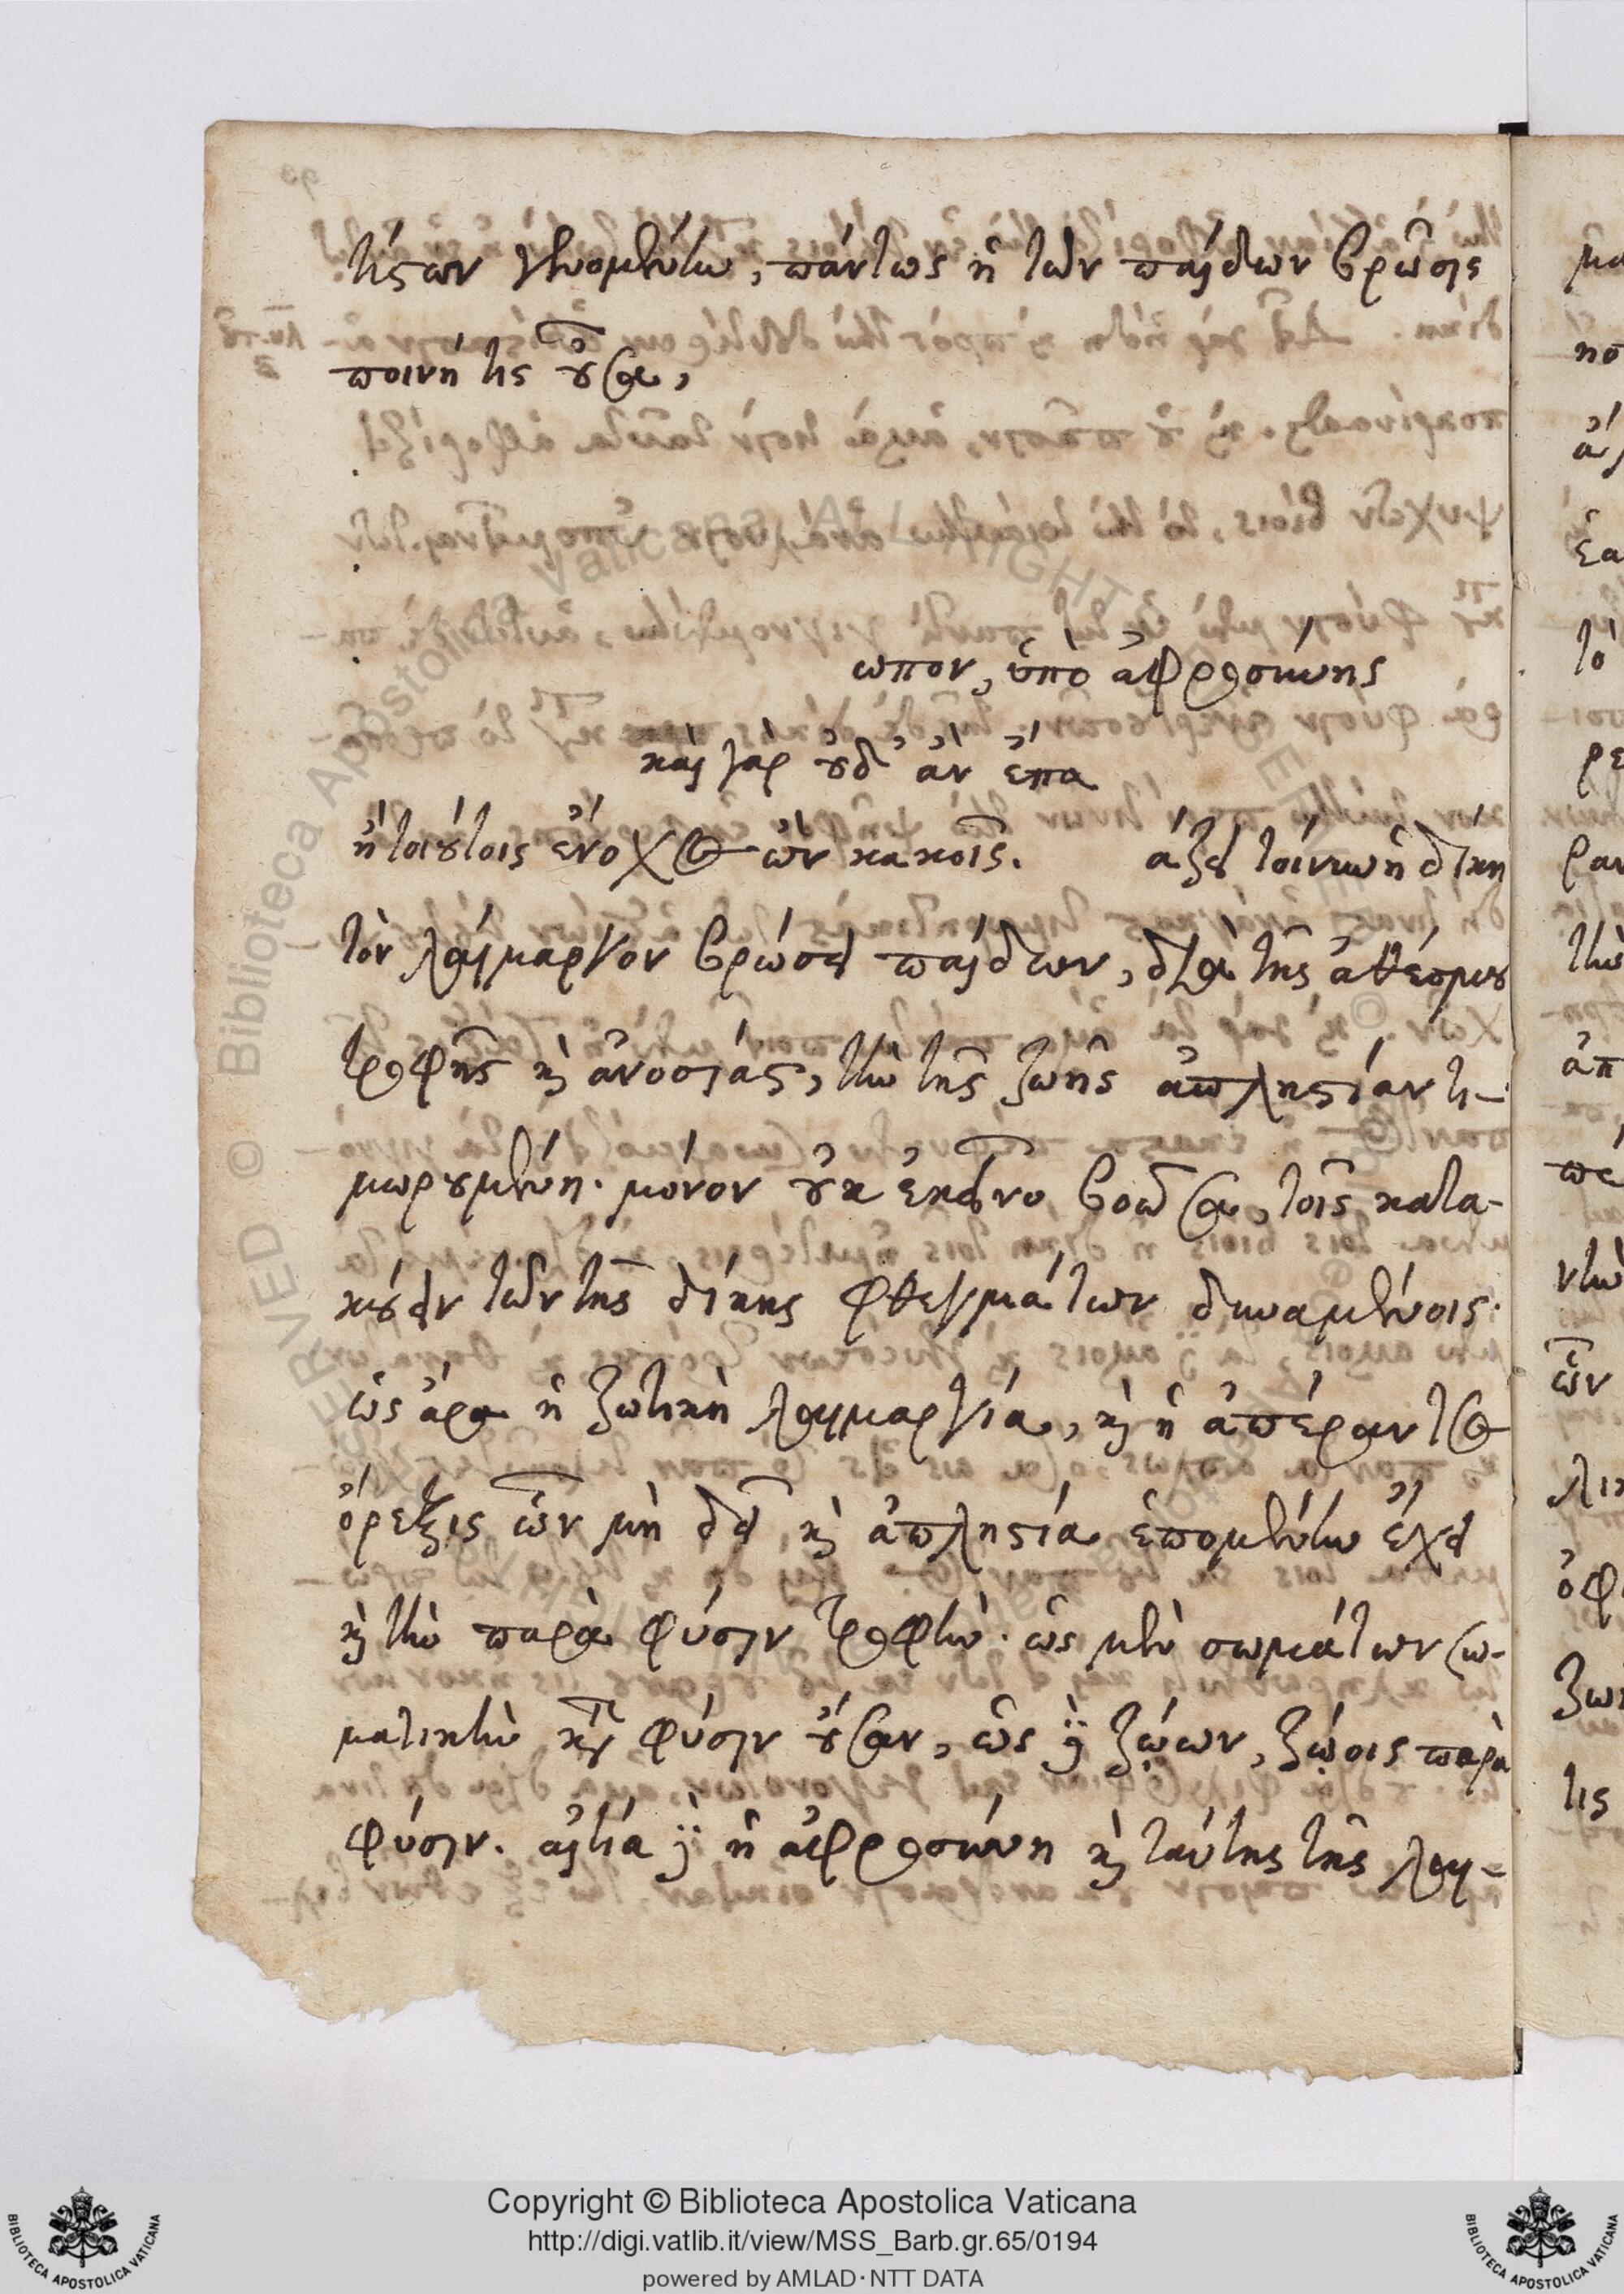 τίςων γευομένων, πάντως ἡ τῶν παίδων βρῶσις
ποινή τις οὖσα,
ωπον, ὑπὸ ἀφροσύνης
καὶ γὰρ οὐδ' ἂν ἔπα
ἢ τοιούτοις ἔνοχος ὢν κακοῖς. ἄξει τοίνυν ἡ δίκη
τὸν λαίμαργον βρώσει παίδων, διὰ τῆς ἀθέσμου
τροφῆς καὶ ἀνοσίας, τὴν τῆς ζωῆς ἀπληστίαν τι-
μωρουμένη. μόνον οὐκ ἐκεῖνο βοῶσα, τοῖς κατα-
κούειν τῶν τῆς δίκης φθεγμάτων δυναμένοις.
ὡς ἄρα ἡ ζωτικὴ λαιμαργία, καὶ ἡ ἀπέραντος
ὄρεξις ὧν μὴ δεῖ καὶ ἀπληστία ἑπομένην ἔχει
καὶ τὴν παρὰ φύσιν τροφήν. ὡς μὲν σωμάτων σω-
ματικὴν κατὰ φύσιν οὖσαν, ὡς δὲ ζώων, ζώοις παρὰ
φύσιν. αἰτία δὲ ἡ ἀφροσύνη καὶ ταύτης τῆς λαι-
Copyright © Biblioteca Apostolica Vaticana
http://digi.vatlib.it/view/MSS_Barb.gr.65/0194
powered by AMLAD·NTT DATA
BIBLIOTECA APOSTOLICA VATICANA
BIBLIOTECA APOSTOLICA VATICANA